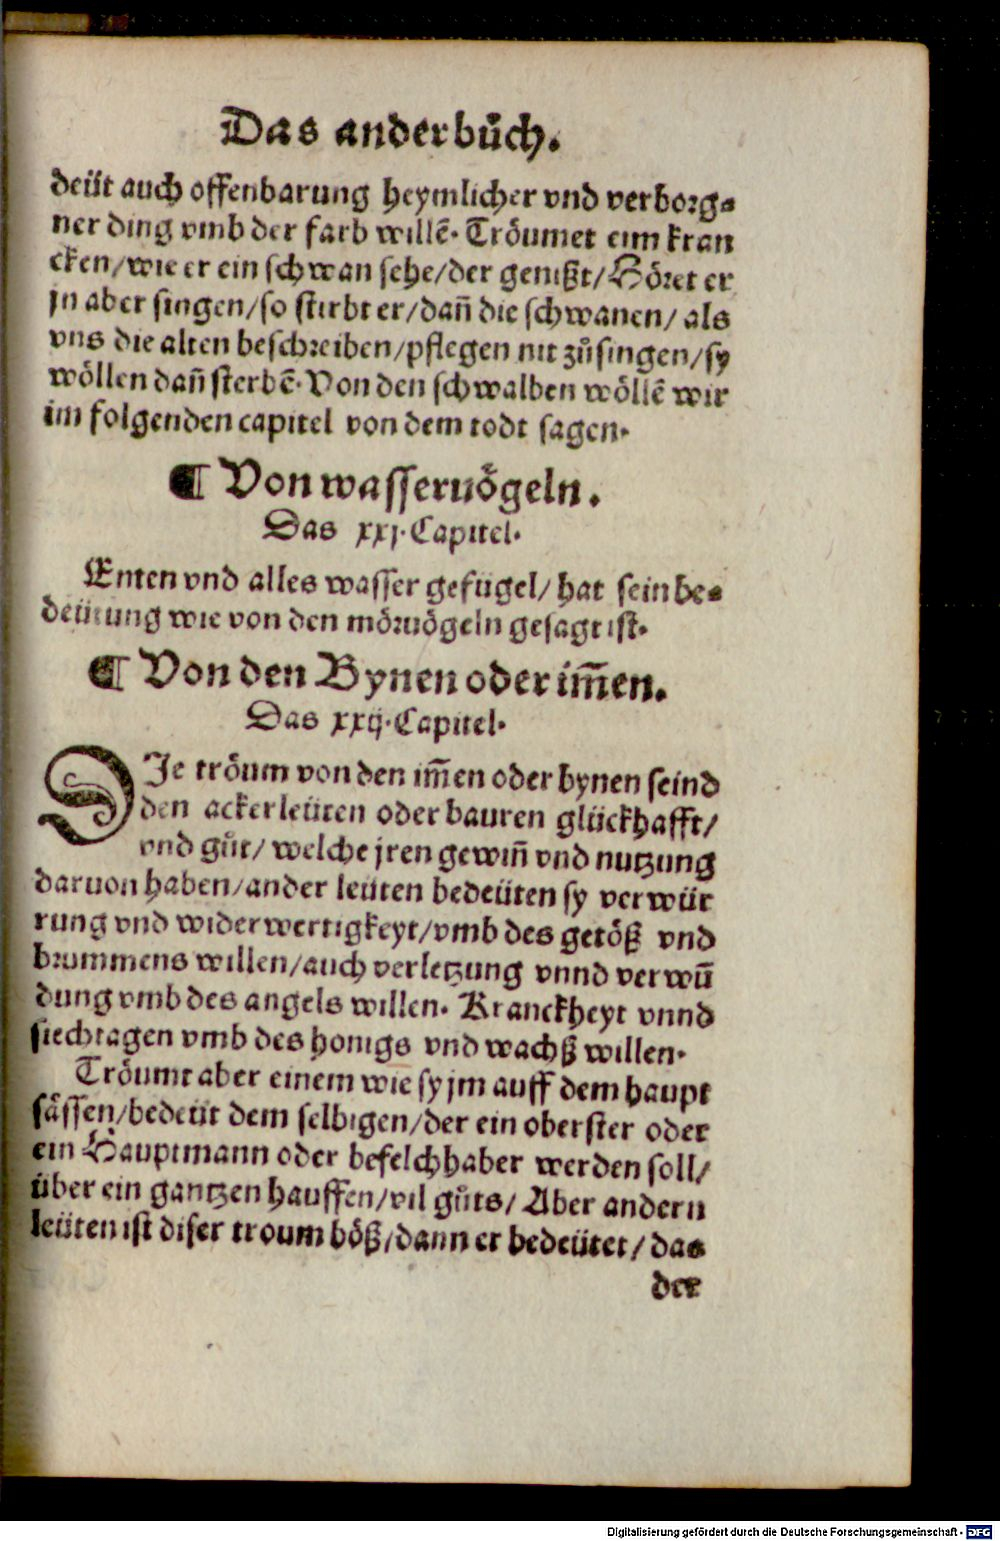 Das ander bůch.
deüt auch offenbarung heymlicher vnd verborg⸗
ner ding vmb der farb willē. Tröumet eim kran
cken/wie er ein schwan sehe/der genißt/Höret er
jn aber singen/so stirbt er/dañ die schwanen/ als
vns die alten beschreiben/pflegen nit zůsingen/sy
wöllen dañ sterbē. Von den schwalben wöllē wir
im folgenden capitel von dem todt sagen.
¶ Von wasseruögeln.
Das xxj. Capitel.
Enten vnd alles wasser gefügel/ hat sein be⸗
deütung wie von den möruögeln gesagt ist.
¶ Von den Bynen oder im̄en.
Das xxij. Capitel.
DIe tröum von den im̄en oder bynen seind
den ackerleüten oder bauren glückhafft/
vnd gůt/ welche jren gewiñ vnd nutzung
daruon haben/ander leüten bedeüten sy verwür
rung vnd widerwertigkeyt/vmb des getöß vnd
brummens willen/auch verletzung vnnd verwū
dung vmb des angels willen. Kranckheyt vnnd
siechtagen vmb des honigs vnd wachß willen.
Tröumt aber einem wie sy jm auff dem haupt
sässen/bedeüt dem selbigen/der ein oberster oder
ein Hauptmann oder befelchhaber werden soll/
über ein gantzen hauffen/vil gůts/ Aber andern
leüten ist diser troum böß/dann er bedeütet/ das
der
Digitalisierung gefördert durch die Deutsche Forschungsgemeinschaft - DFG